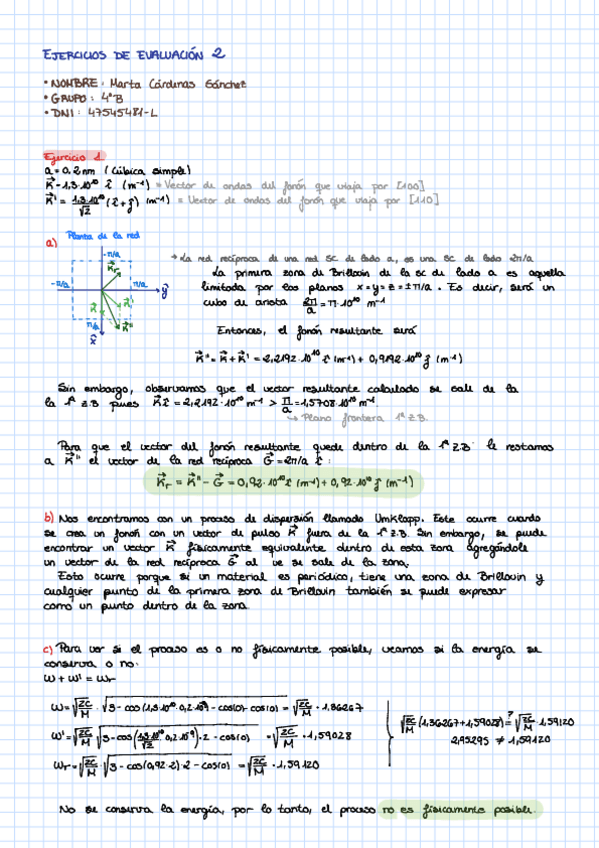 EJERCICIOS DE EVALUACIÓN 2
• NOMBRE: Marta Cárdenas Sánchez
• GRUPO: 4ºB
• DNI: 47545481-L
Ejercicio 1
a = 0,2 nm (cúbica simple)
K⃗ = 1,3·10¹⁰ î (m⁻¹) ≡ Vector de ondas del fonón que viaja por [100]
K⃗' = 1,3·10¹⁰/√2 (î + ĵ) (m⁻¹) ≡ Vector de ondas del fonón que viaja por [110]
a)
Planta de la red
-π/a
K⃗r
-π/a
π/a
ŷ
K⃗
K⃗'
π/a
K⃗''
x̂
→ La red recíproca de una red sc de lado a, es una sc de lado 2π/a
La primera zona de Brillouin de la sc de lado a es aquella
limitada por los planos x=y=z=±π/a. Es decir, será un
cubo de arista 2π/a = π·10¹⁰ m⁻¹
Entonces, el fonón resultante será
K⃗'' = K⃗ + K⃗' = 2,2192·10¹⁰ î (m⁻¹) + 0,9192·10¹⁰ ĵ (m⁻¹)
Sin embargo, observamos que el vector resultante calculado se sale de la
la 1ª Z.B. pues K⃗î = 2,2192·10¹⁰ m⁻¹ > π/a = 1,5708·10¹⁰ m⁻¹
↳ Plano frontera 1ª Z.B.
Para que el vector del fonón resultante quede dentro de la 1ª Z.B. le restamos
a K⃗'' el vector de la red recíproca G⃗ = 2π/a î:
K⃗r = K⃗'' - G⃗ = 0,92·10¹⁰ î (m⁻¹) + 0,92·10¹⁰ ĵ (m⁻¹)
b) Nos encontramos con un proceso de dispersión llamado Umklapp. Este ocurre cuando
se crea un fonón con un vector de pulso K⃗ fuera de la 1ª Z.B. Sin embargo, se puede
encontrar un vector K⃗ físicamente equivalente dentro de esta zona agregándole
un vector de la red recíproca G⃗ al que se sale de la zona.
Esto ocurre porque si un material es periódico, tiene una zona de Brillouin y
cualquier punto de la primera zona de Brillouin también se puede expresar
como un punto dentro de la zona.
c) Para ver si el proceso es o no físicamente posible, veamos si la energía se
conserva o no:
ω + ω' = ωr
ω = √(2C/M) · √(3 - cos(1,3·10¹⁰·0,2·10⁻⁹) - cos(0) - cos(0)) = √(2C/M) · 1,36267
ω' = √(2C/M) √(3 - cos(1,3·10¹⁰/√2 · 0,2·10⁻⁹)·2 - cos(0)) = √(2C/M) · 1,59028
ωr = √(2C/M) √(3 - cos(0,92·2)·2 - cos(0)) = √(2C/M) · 1,59120
√(2C/M) (1,36267+1,59028) =? √(2C/M) · 1,59120
2,95295 ≠ 1,59120
No se conserva la energía, por lo tanto, el proceso no es físicamente posible.